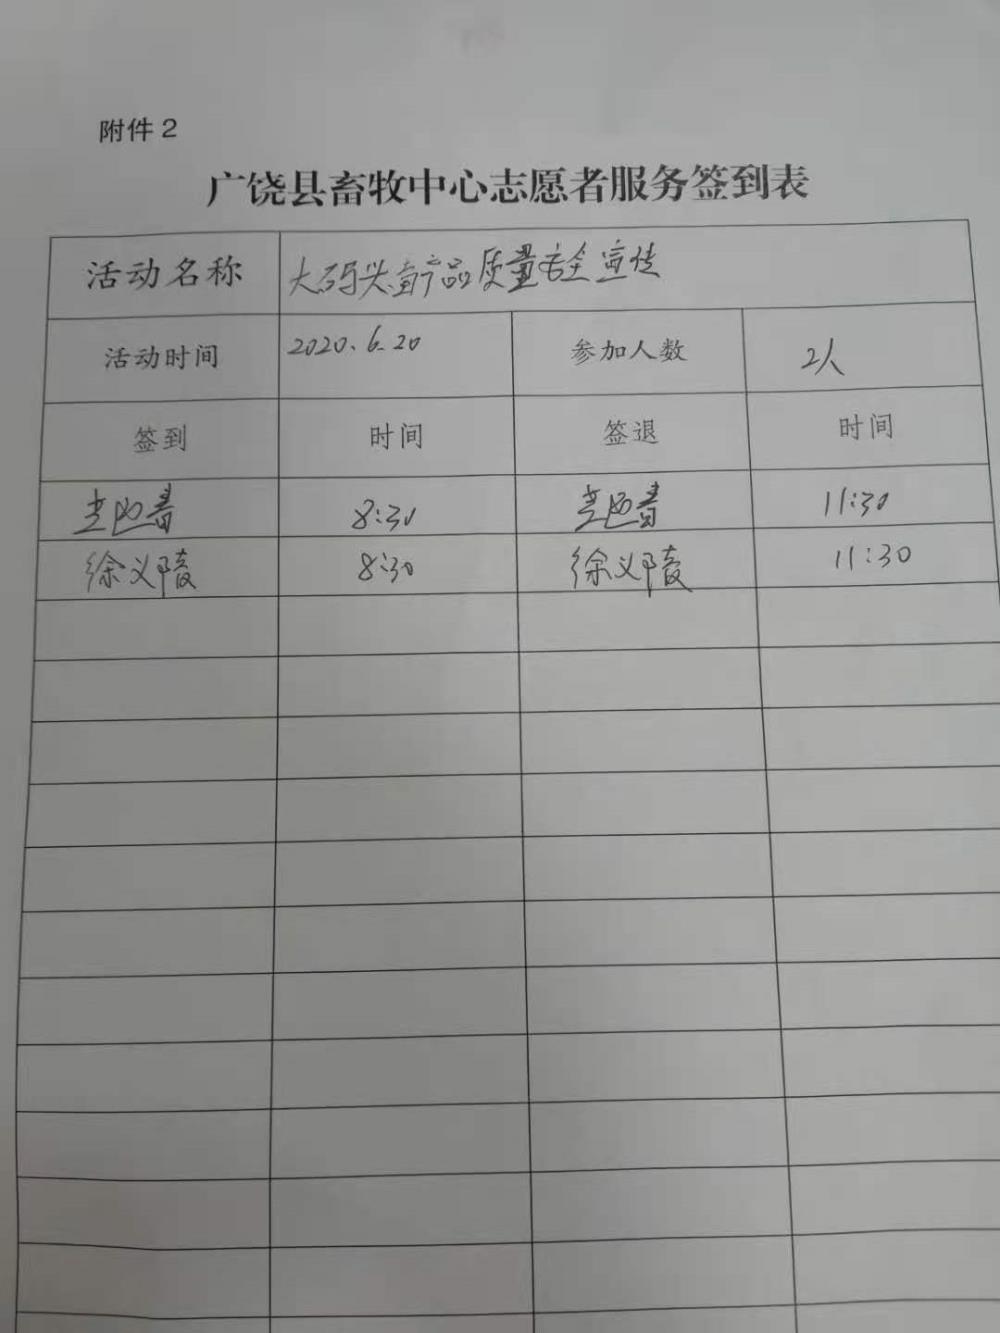 附件2
广饶县畜牧中心志愿者服务签到表
活动名称 大码头畜产品质量安全宣传
活动时间 2020.6.20 参加人数 2人
签到 时间 签退 时间
8:30 11:30
徐义陵 8:30 徐义陵 11:30